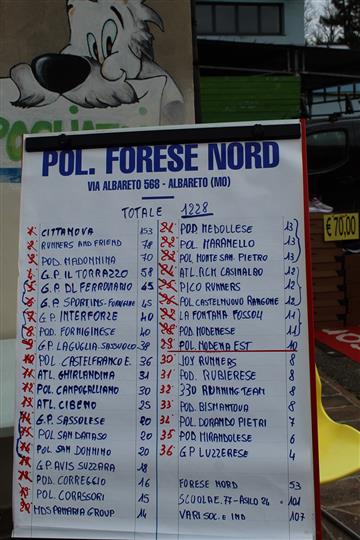 POL. FORESE NORD
VIA ALBARETO 568 - ALBARETO (MO)
TOTALE 1228
CITTANOVA 153
RUNNERS AND FRIEND 78
POD. MADONNINA 70
G.P. IL TORRAZZO 58
G.P. DLF FERROVIARIO 45
G.P. INTERFORZE 40
POD. FORMIGINESE 40
G.P. LAGUGLIA-SASSUOLO 38
10 POL. CASTELFRANCO E. 36
11 ATL. GHIRLANDINA 31
POL. CAMPOGALLIANO 30
ATL. CIBENO 25
G.P. SASSOLESE 20
POL SAN DAMASO 20
POL. SAN DONNINO 20
G.P. AVIS SUZZARA 18
POD. CORREGGIO 16
POL. CORASSORI 15
MDS PANARIA GROUP 14
21 POD MEDOLLESE 13
22 POL MARANELLO 13
POL MONTE SAN PIETRO 13
24 ATL. RCM CASINALBO 12
25 PICO RUNNERS 12
26 POL CASTELNUOVO RANGONE 12
27 LA FONTANA FOSSOLI 11
28 POD. MODENESE 11
29 POL MODENA EST 10
30 JOY RUNNERS 8
31 POD. RUBIERESE 8
32 330 RUNNING TEAM 8
33 POD. BISMANTOVA 8
34 POL. DORANDO PIETRI 7
35 POD MIRANDOLESE 6
36 G.P LUZZARESE 4
FORESE NORD 53
SCUOLA E. 77 - ASILO 24 101
VARI SOC. E IND 107
€ 70,00